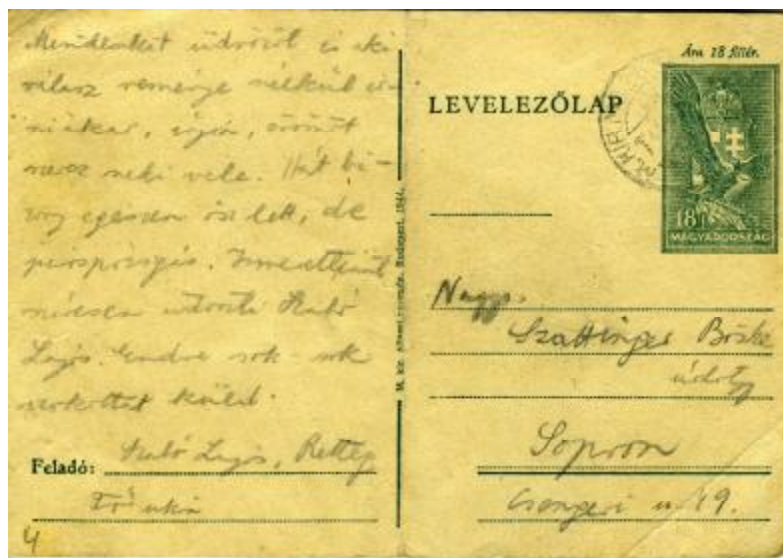 Mindenkit üdvözöl és aki
válasz reménye nélkül
, írjon, örömöt
szerez neki vele. Hát bi-
zony egészen ősz lett, de
piros pozsgás. Ismeretlenül
üdvözli Szabó
Lajos. Endre sok-sok
csókot küld.
Feladó: Szabó Lajos, Retteg
Fő utca
4
M. kir. Állami nyomda, Budapest. 1944.
Ára 18 fillér.
LEVELEZŐLAP
M. KIR.
18f
MAGYARORSZÁG
Nagys.
Szattinger Böske
úrhölgy
Sopron
Csengeri u 49.